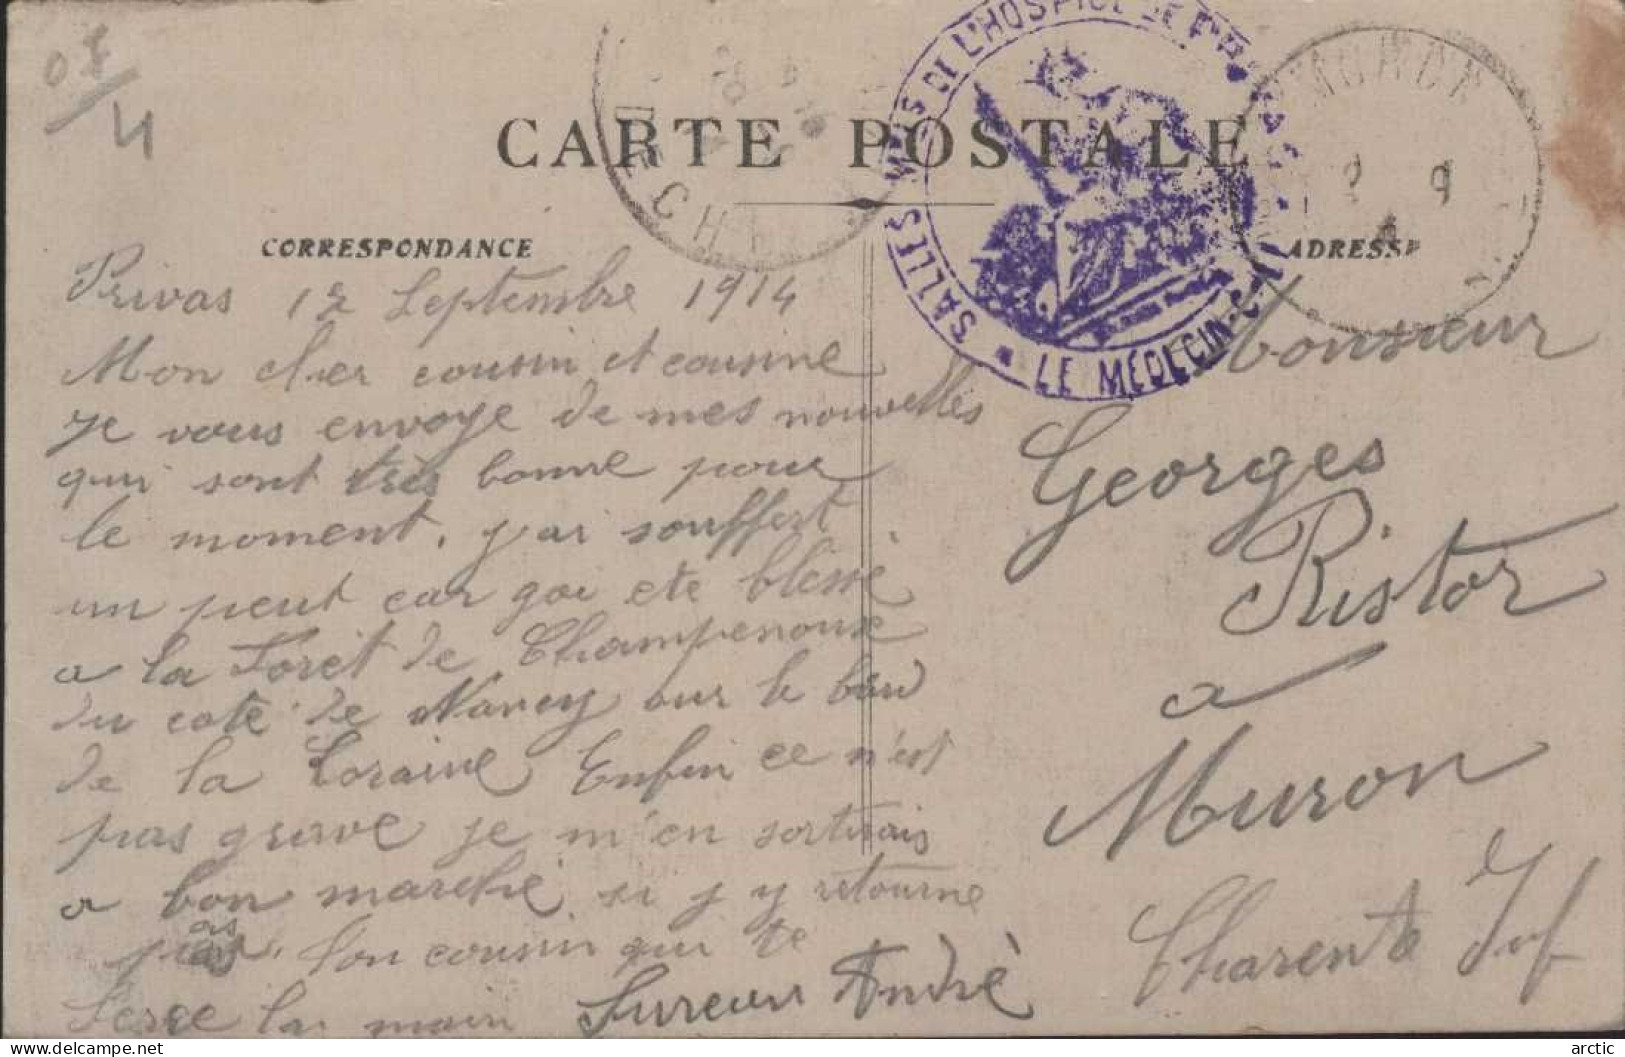 07/4
CARTE POSTALE
CORRESPONDANCE
ADRESSE
SALLES MILIS DE L'HOSPICE DE PRIVAS
LE MÉDECIN-C
ARDECHE
Privas 12 Septembre 1914
Mon cher cousin et cousine
Je vous envoye de mes nouvelles
qui sont très bonne pour
le moment, j'ai souffert
un peut car goi ete blessé
a la Foret de Champenoux
du coté de Nancy sur le bord
de la Loraine Enfin ce n'est
pas grave je m'en sortirais
a bon marché si j y retourne
pas. Ton cousin qui te
Serre la main Fureur André
Monsieur
Georges
Ristor
a
Muron
Charente Inf
delcampe.net
arctic